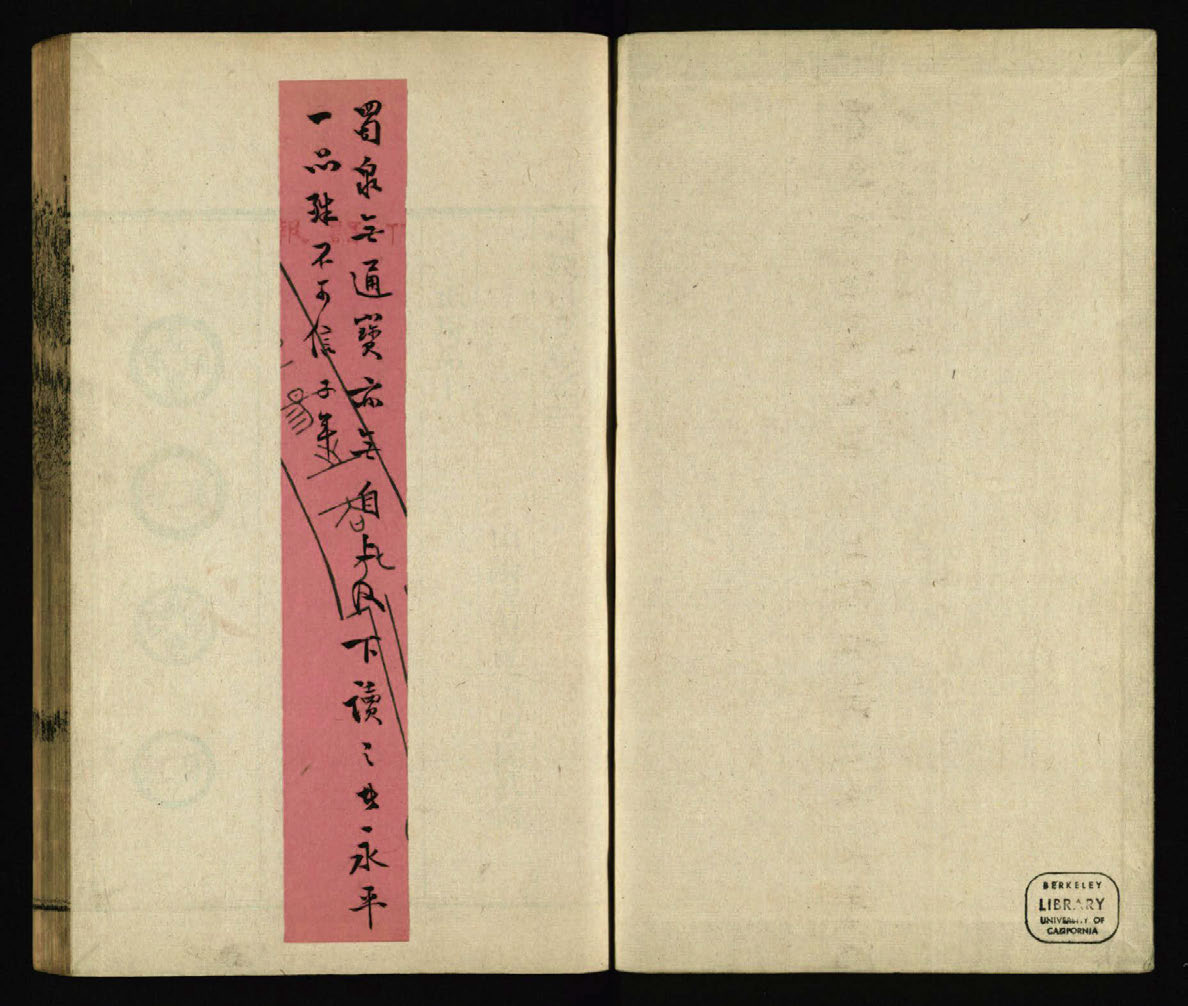 蜀泉無通寳亦無自上及下讀之者永平
一品殊不可信子年
BERKELEY
LIBRARY
UNIVERSITY OF
CALIFORNIA